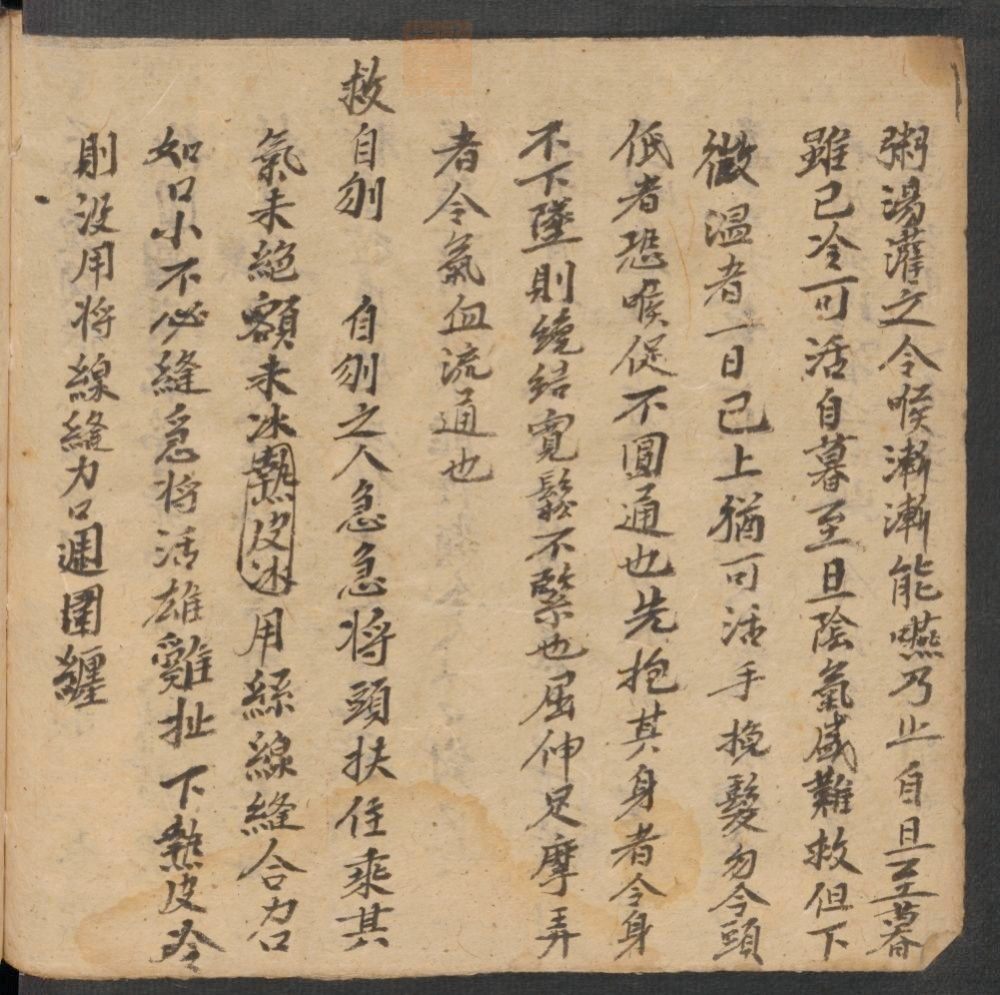 粥湯灌之令喉漸漸能嚥乃止自旦至暮
雖已冷可活自暮至旦陰氣盛難救但下
微温者一日已上猶可活手挽髮勿令頭
低者恐喉促不圓通也先抱其身者令身
不下墜則繞結寬鬆不緊也屈伸足摩弄
者令氣血流通也
救自刎　自刎之人急急將頭扶住乘其
氣未絶額未冰熱皮冰用絲線縫合刀口
如口小不必縫急将活雄雞扯下熱皮冷
則没用将線縫刀口週圍纏